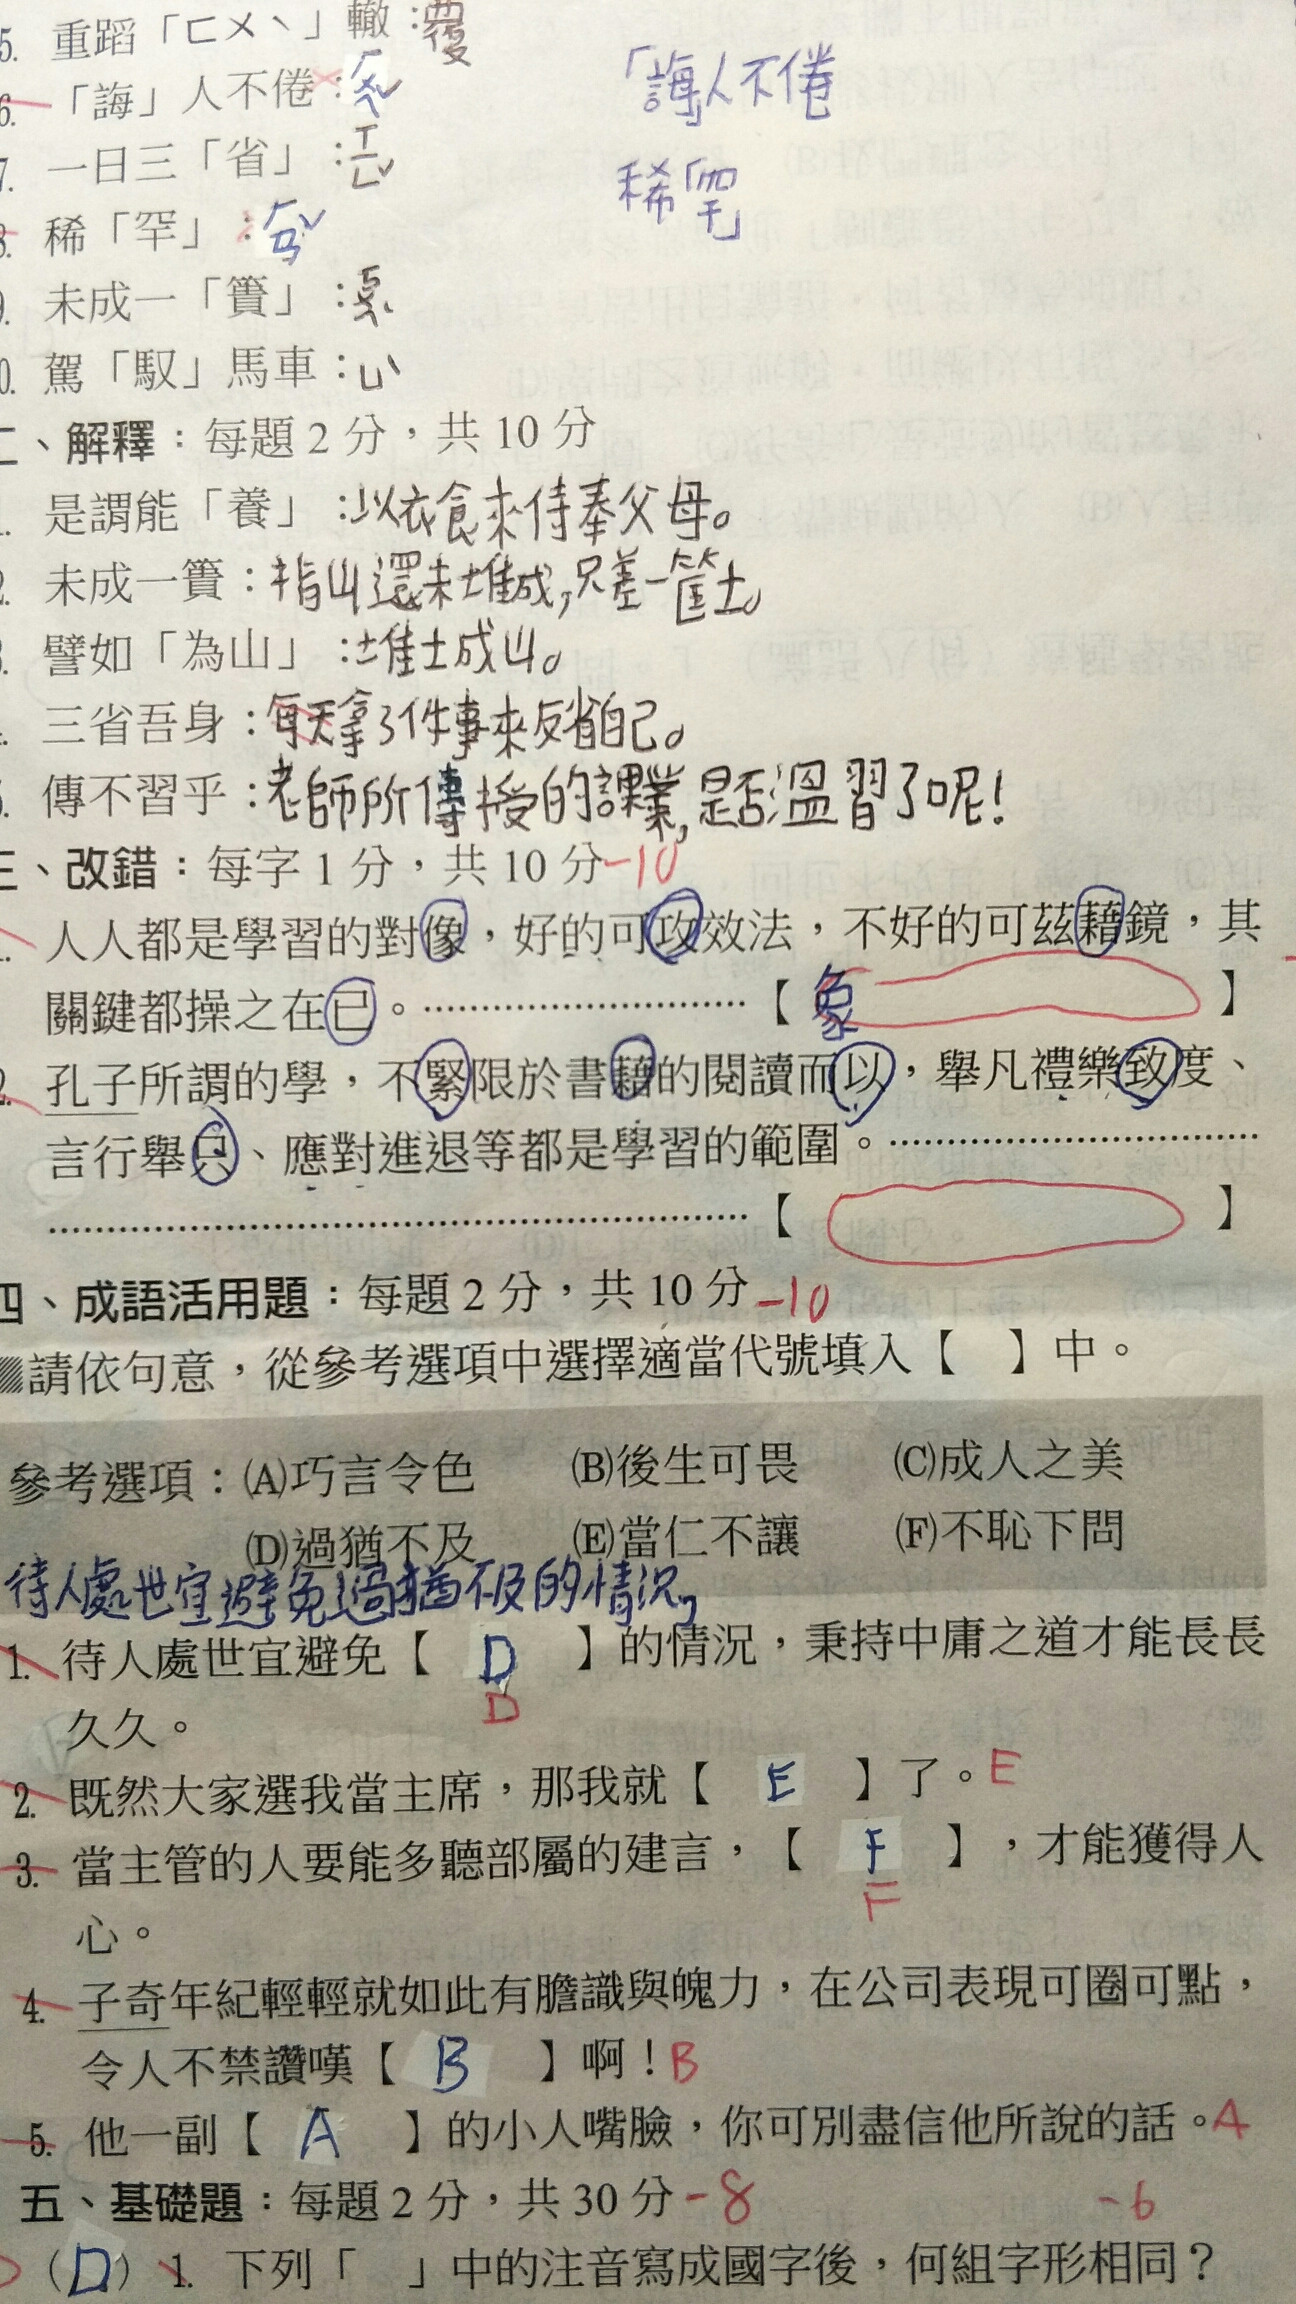 5. 重蹈「ㄈㄨˋ」轍：覆
6. 「誨」人不倦：ㄏㄨㄟˇ 「誨」人不倦
7. 一日三「省」：ㄒㄧㄥˇ
稀「罕」：ㄏㄢˇ 稀「罕」
未成一「簣」：ㄎㄨㄟˋ
0. 駕「馭」馬車：ㄩˋ
二、解釋：每題2分，共10分
是謂能「養」：以衣食來侍奉父母。
未成一簣：指山還未堆成，只差一筐土。
譬如「為山」：堆土成山。
三省吾身：每天拿了件事來反省自己。
傳不習乎：老師所傳授的課業，是否溫習了呢！
三、改錯：每字1分，共10分 -10
人人都是學習的對像，好的可攻效法，不好的可茲藉鏡，其
關鍵都操之在已。…………………………【象 】
2. 孔子所謂的學，不緊限於書藉的閱讀而以，舉凡禮樂致度、
言行舉只、應對進退等都是學習的範圍。………………………………
……………………………………………………………【 】
四、成語活用題：每題2分，共10分 -10
請依句意，從參考選項中選擇適當代號填入【 】中。
參考選項：(A)巧言令色 (B)後生可畏 (C)成人之美
(D)過猶不及 (E)當仁不讓 (F)不恥下問
待人處世宜避免過猶不及的情況，
1. 待人處世宜避免【 D 】的情況，秉持中庸之道才能長長
D
久久。
2. 既然大家選我當主席，那我就【 E 】了。E
3. 當主管的人要能多聽部屬的建言，【 F 】，才能獲得人
F
心。
4. 子奇年紀輕輕就如此有膽識與魄力，在公司表現可圈可點，
令人不禁讚嘆【 B 】啊！B
5. 他一副【 A 】的小人嘴臉，你可別盡信他所說的話。A
五、基礎題：每題2分，共30分 -8 -6
（D）1. 下列「 」中的注音寫成國字後，何組字形相同？